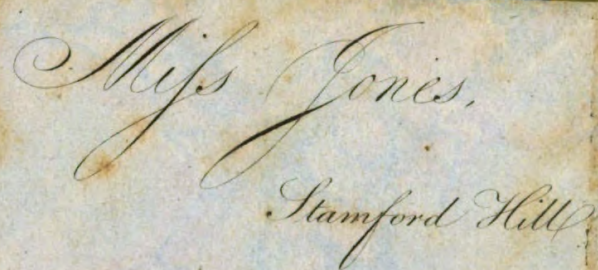 Miſs Jones.
Stamford Hill